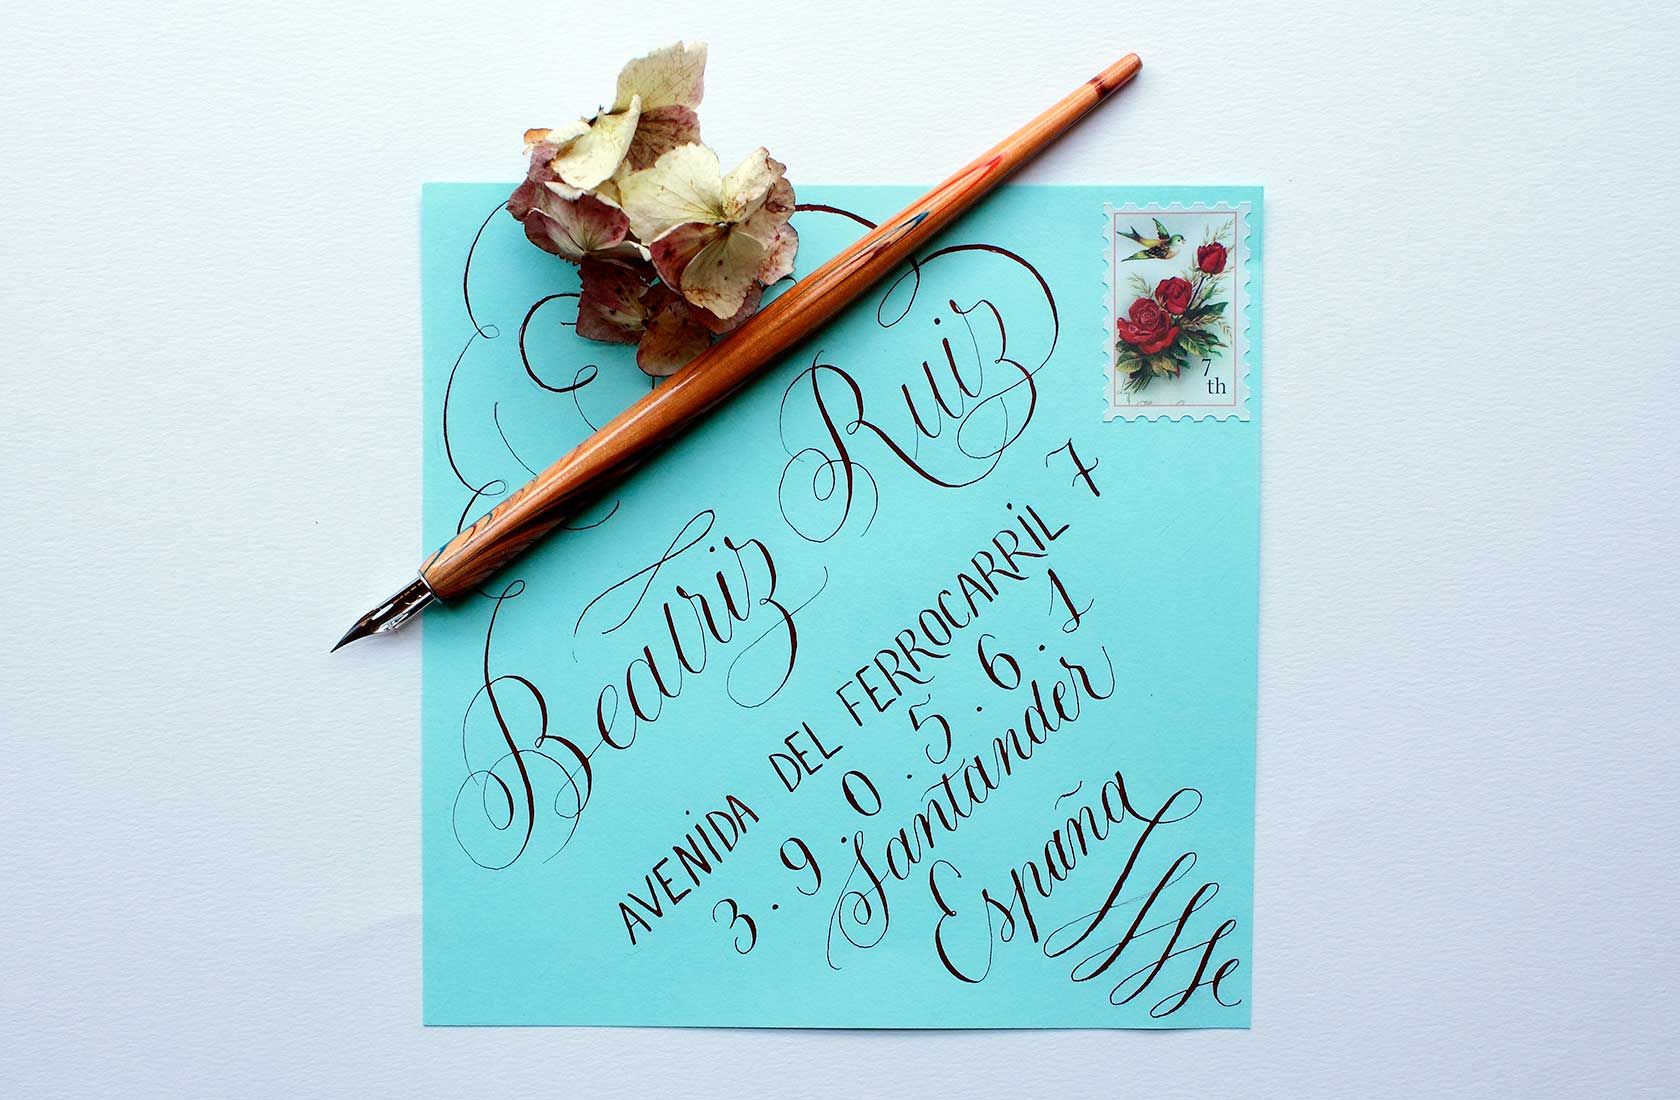 Beatriz Ruiz
AVENIDA DEL FERROCARRIL 7
3.9.0.5.6.1
Santander
España
7
th